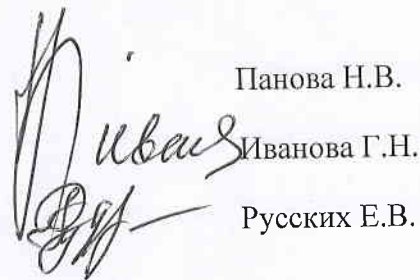 Панова Н.В.
Иванова Г.Н.
Русских Е.В.